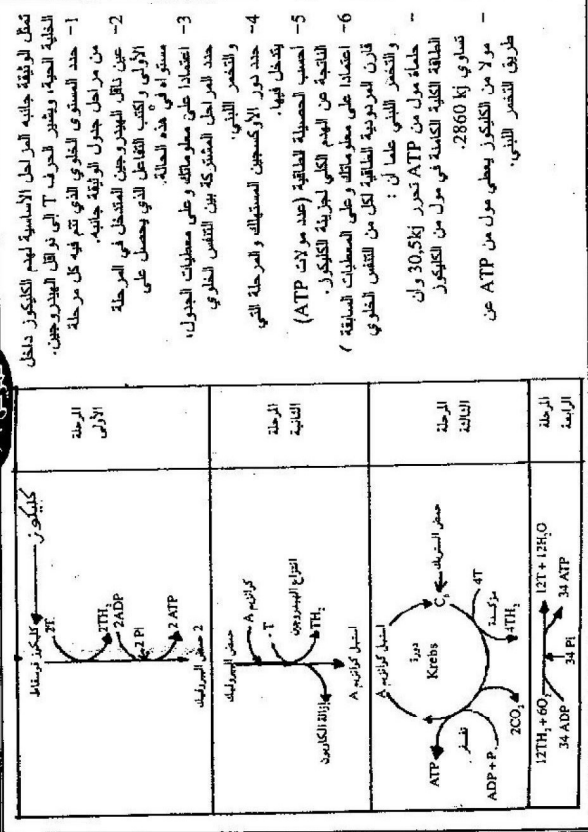 تمثل الوثيقة جانبه المراحل الأساسية لهدم الكليكوز داخل
الخلية الحية، ويشير الحرف T إلى نواقل الهيدروجين.
1- حدد المستوى الخلوي الذي تتم فيه كل مرحلة
من مراحل جدول الوثيقة جانبه.
2- عين ناقل الهيدروجين المتدخل في المرحلة
الأولى واكتب التفاعل الذي يحصل على
مستواه في هذه الحالة.
3- اعتمادا على معلوماتك وعلى معطيات الجدول،
حدد المراحل المشتركة بين التنفس الخلوي
والتخمر اللبني.
4- حدد دور الأوكسجين المستهلك والمرحلة التي
يتدخل فيها.
5- أحسب الحصيلة الطاقية (عدد مولات ATP)
الناتجة عن الهدم الكلي لجزيئة الكليكوز.
6- اعتمادا على معلوماتك وعلى المعطيات السابقة
قارن المردودية الطاقية لكل من التنفس الخلوي
والتخمر اللبني علما أن :
- حلمأة مول من ATP تحرر 30,5kj وأن
الطاقة الكلية الكامنة في مول من الكليكوز
تساوي 2860 kj.
- مولا من الكليكوز يعطي مول من ATP عن
طريق التخمر اللبني.
المرحلة
الأولى
كليكوز
كليكوز فوسفاط
2T
2TH₂
2ADP
2 Pi
2 ATP
2 حمض البيروفيك
المرحلة
الثانية
حمض البيروفيك
كوأنزيم A
T
انتزاع الهيدروجين
TH₂
إزالة الكاربون
أستيل كوأنزيم A
المرحلة
الثالثة
أستيل كوأنزيم A
دورة
Krebs
حمض الستريك
C₆
4T
مؤكسدة
4TH₂
2CO₂
ADP + Pi
ATP
المرحلة
الرابعة
12TH₂ + 6O₂
12T + 12H₂O
34 ADP
34 Pi
34 ATP